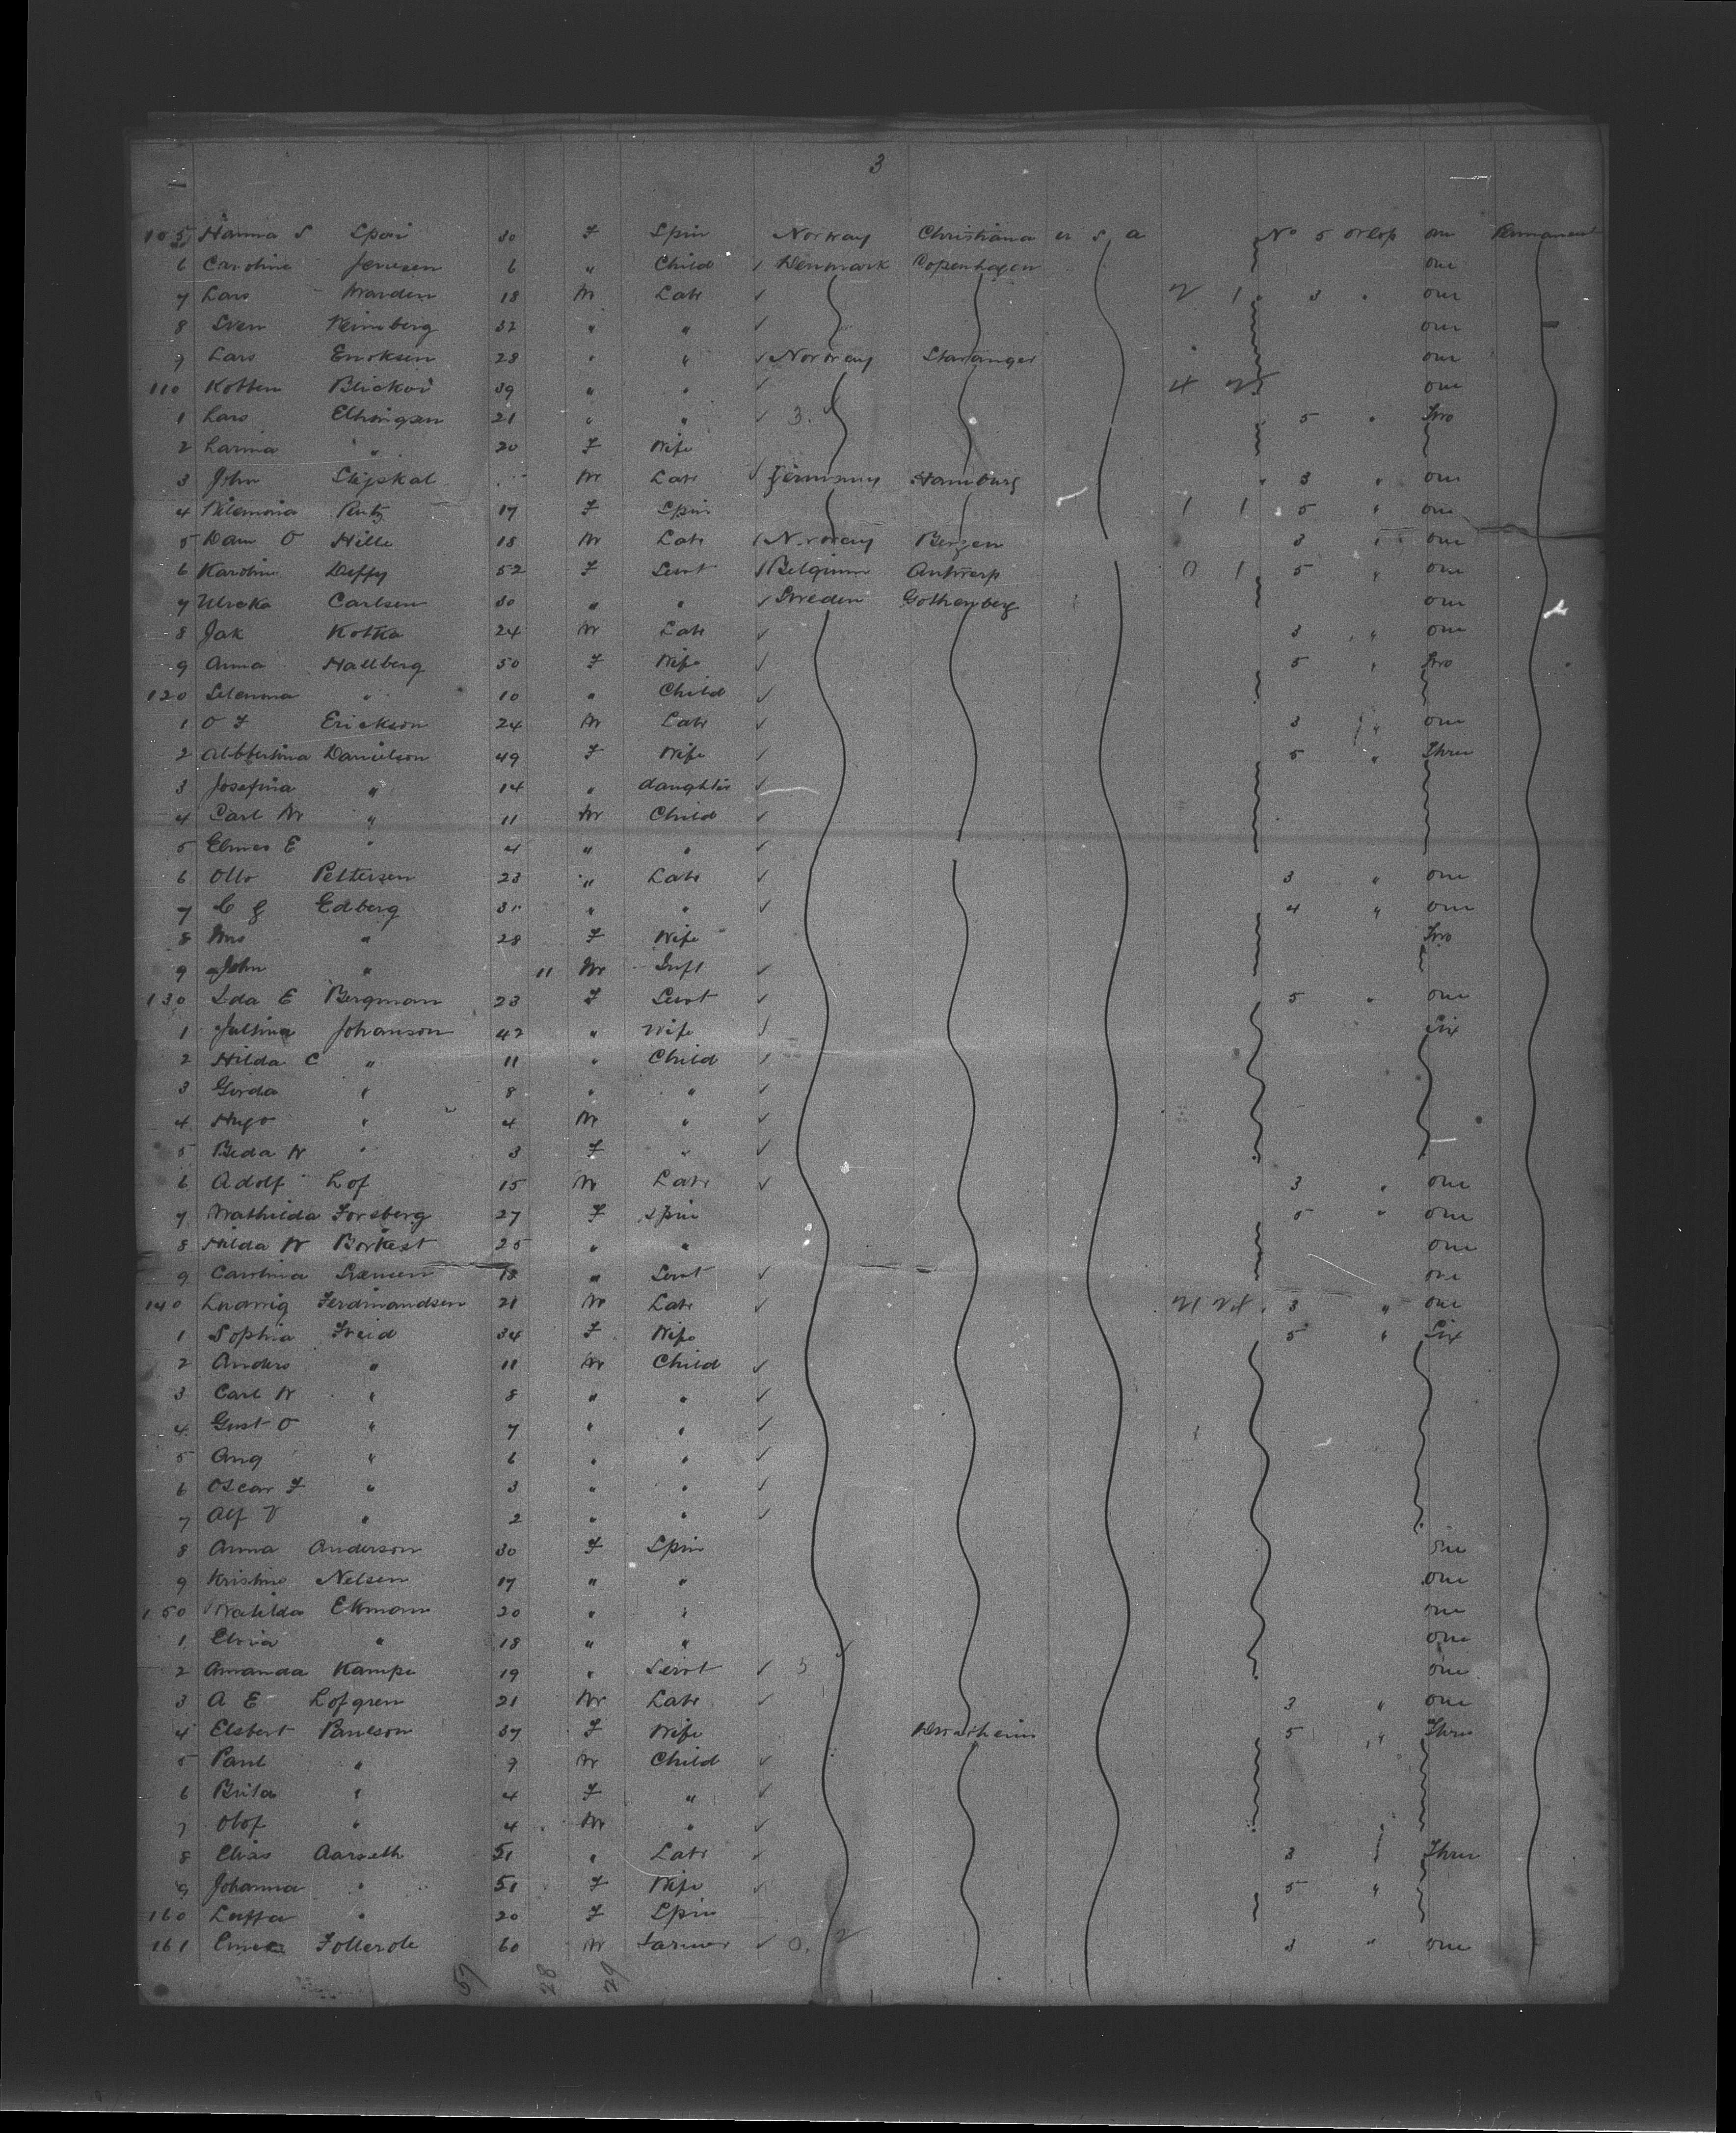 3
105 Hanna S Spari 30 F Spin Norway Christiana U S A No 5 Orlop one Permanent
6 Caroline Jensen 6 " Child Denmark Copenhagen one
7 Lars 18 M Labr 2 1 3 " one
8 Sven Reinsberg 32 " " one
9 Lars Enoksen 28 " " Norway Stavanger one
110 39 " " 4 one
1 Lars 21 " " 3. 5 " Two
2 Lanna " 20 F Wife
3 John M Labr Germany Hamburg 3 " one
4 17 F Spin 1 1 5 " one
5 O Hille 18 M Labr Norway Bergen 3 " one
6 Karolin Deffy 52 F Servt Belgium Antwerp 0 1 5 " one
7 Ulreka Carlsen 30 " " Sweden Gothenberg one
8 Jak Kotka 24 M Labr 3 " one
9 Anna Hallberg 50 F Wife 5 " Two
120 " 10 " Child
1 O F Erickson 24 M Labr 3 " one
2 Danielson 49 F Wife 5 " Three
3 Josefina " 14 " daughter
4 Carl W " 11 M Child
5 Elmer E " 4 " "
6 Otto Pettersen 23 " Labr 3 " one
7 C G Edberg 31 " " 4 " one
8 Mrs " 28 F Wife Two
9 John " 11 M Inft
130 Ida E Bergman 23 F Servt 5 " one
1 Johanson 42 " Wife Six
2 Hilda C " 11 " Child
3 Gerda " 8 " "
4 Hugo " 4 M "
5 Beda W " 3 F "
6 Adolf Lof 15 M Labr 3 " one
7 Mathilda Forsberg 27 F Spin 5 " one
8 Hilda W 25 " " one
9 Carolina 18 " Servt one
140 Ludwig Ferdinandsen 21 M Labr 3 " one
1 Sophia Freid 34 F Wife 5 " Six
2 Anders " 11 M Child
3 Carl W " 8 " "
4 Gust O " 7 " "
5 Aug " 6 " "
6 Oscar F " 3 " "
7 Alf V " 2 " "
8 Anna Anderson 30 F Spin one
9 Kristine Nelsen 17 " " one
150 Matilda Ekman 20 " " one
1 " 18 " " one
2 Amanda Kampe 19 " Servt one
3 A E Lofgren 21 M Labr 3 " one
4 Elsbert Paulson 37 F Wife 5 " Three
5 Paul " 9 M Child
6 Brita " 4 F "
7 Olof " 4 M "
8 Elias Aarseth 51 " Labr 3 " Three
9 Johanna " 51 F Wife 5 "
160 " 20 F Spin
161 60 M Farmer 0. 2 3 " one